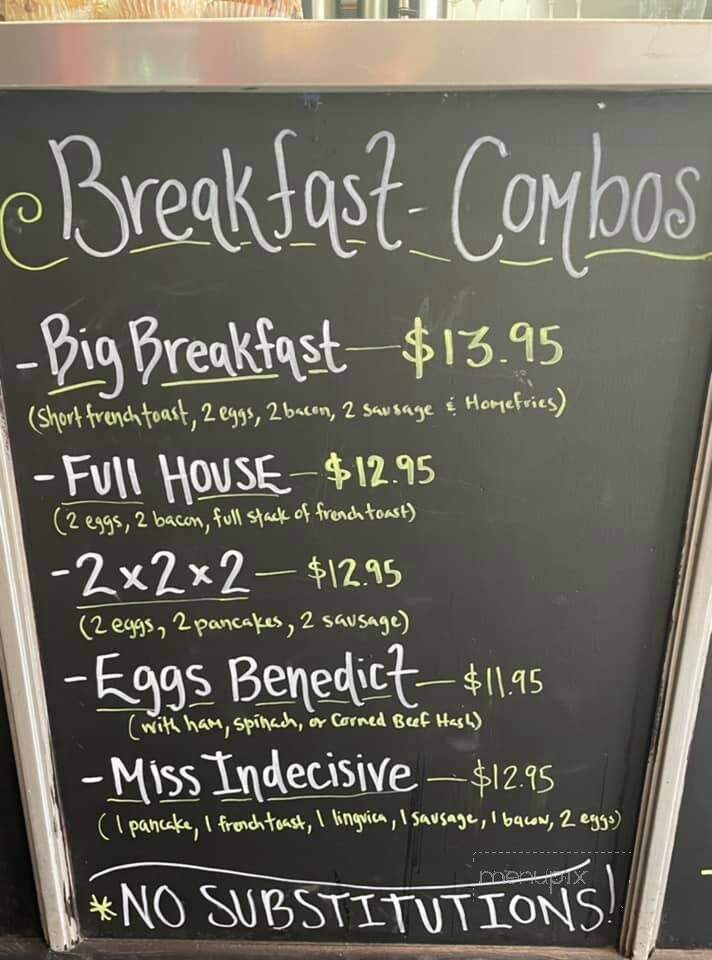 Breakfast Combos
- Big Breakfast — $13.95
(Short french toast, 2 eggs, 2 bacon, 2 sausage & Homefries)
- Full House — $12.95
(2 eggs, 2 bacon, full stack of french toast)
- 2x2x2 — $12.95
(2 eggs, 2 pancakes, 2 sausage)
- Eggs Benedict — $11.95
(with ham, spinach, or Corned Beef Hash)
- Miss Indecisive — $12.95
(1 pancake, 1 french toast, 1 lingvica, 1 sausage, 1 bacon, 2 eggs)
menupix
*NO SUBSTITUTIONS!